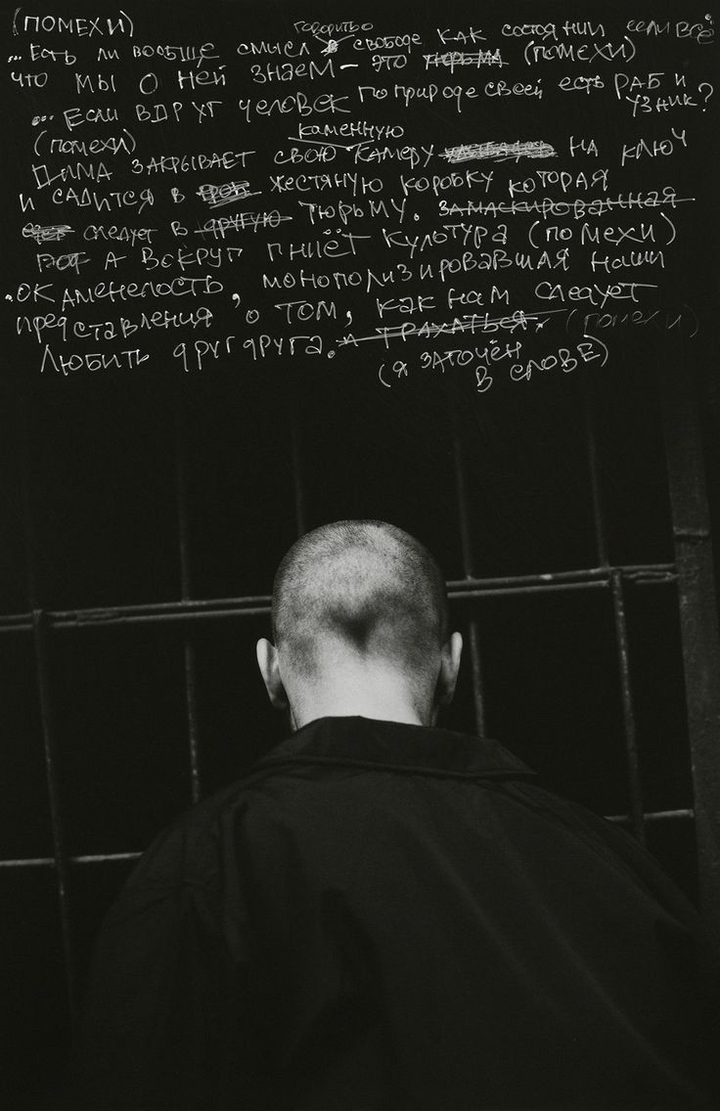 (ПОМЕХИ)
говорить о
...Есть ли вообще смысл свободе как состоянии если всё
что мы о ней знаем – это тюрьма (помехи)
... Если вдруг человек по природе своей есть РАБ и
узник?
(помехи)
каменную
Дима закрывает свою камеру на ключ
и садится в гроб жестяную коробку которая
следует в другую тюрьму. замаскированная
А вокруг гниёт культура (помехи)
.окаменелость, монополизировавшая наши
представления о том, как нам следует
любить друг друга. а трахаться. (помехи)
(я заточён
в слове)